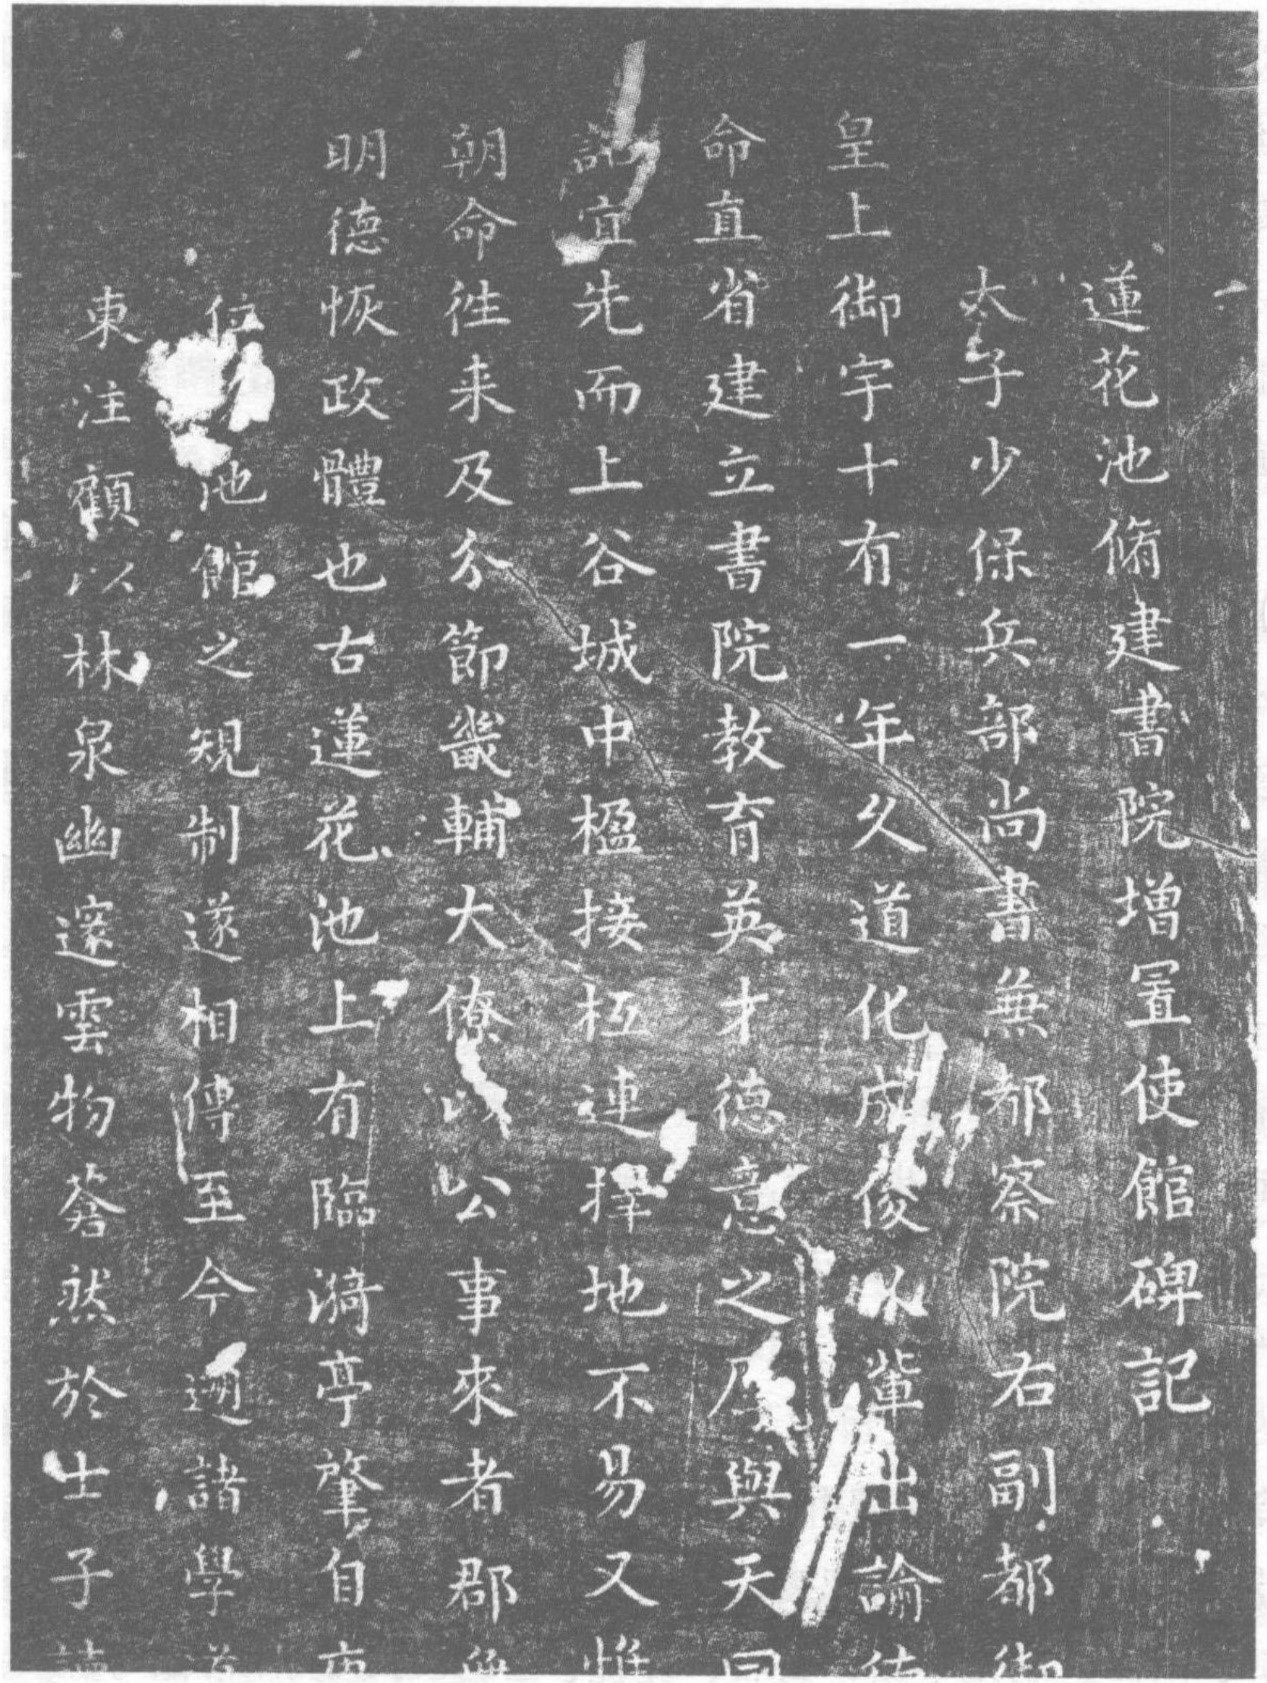 蓮花池脩建書院增置使館碑記
太子少保兵部尚書兼都察院右副都御
皇上御宇十有一年久道化成俊乂輩出論
命直省建立書院教育英才德意之厚與天同
記宜先而上谷城中楹接桓連擇地不易又惟
朝命徃来及分節畿輔大僚以公事來者郡無
明德恢政體也古蓮花池上有臨漪亭肇自
池館之規制遂相傳至今逈諸學
東注顧以林泉幽邃雲物蒼然於士子讀